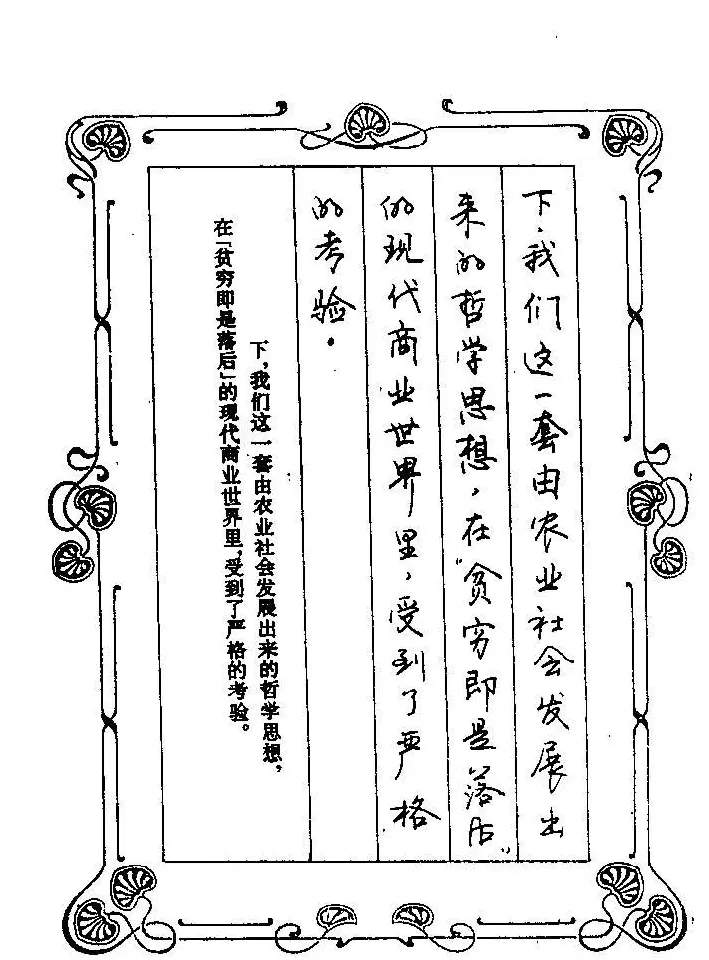 下，我们这一套由农业社会发展出
来的哲学思想，在“贫穷即是落后”
的现代商业世界里，受到了严格
的考验。
下，我们这一套由农业社会发展出来的哲学思想，
在「贫穷即是落后」的现代商业世界里，受到了严格的考验。